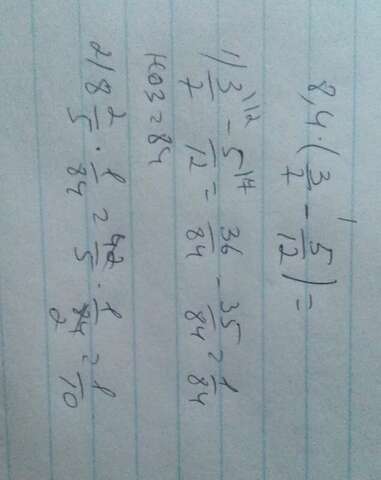 8,4 · (3/7 - 5/12) =
1) 3/7 \12 - 5/12 \7 = 36/84 - 35/84 = 1/84
НОЗ = 84
2) 8 2/5 · 1/84 = 42/5 · 1/84 = 1/10
2